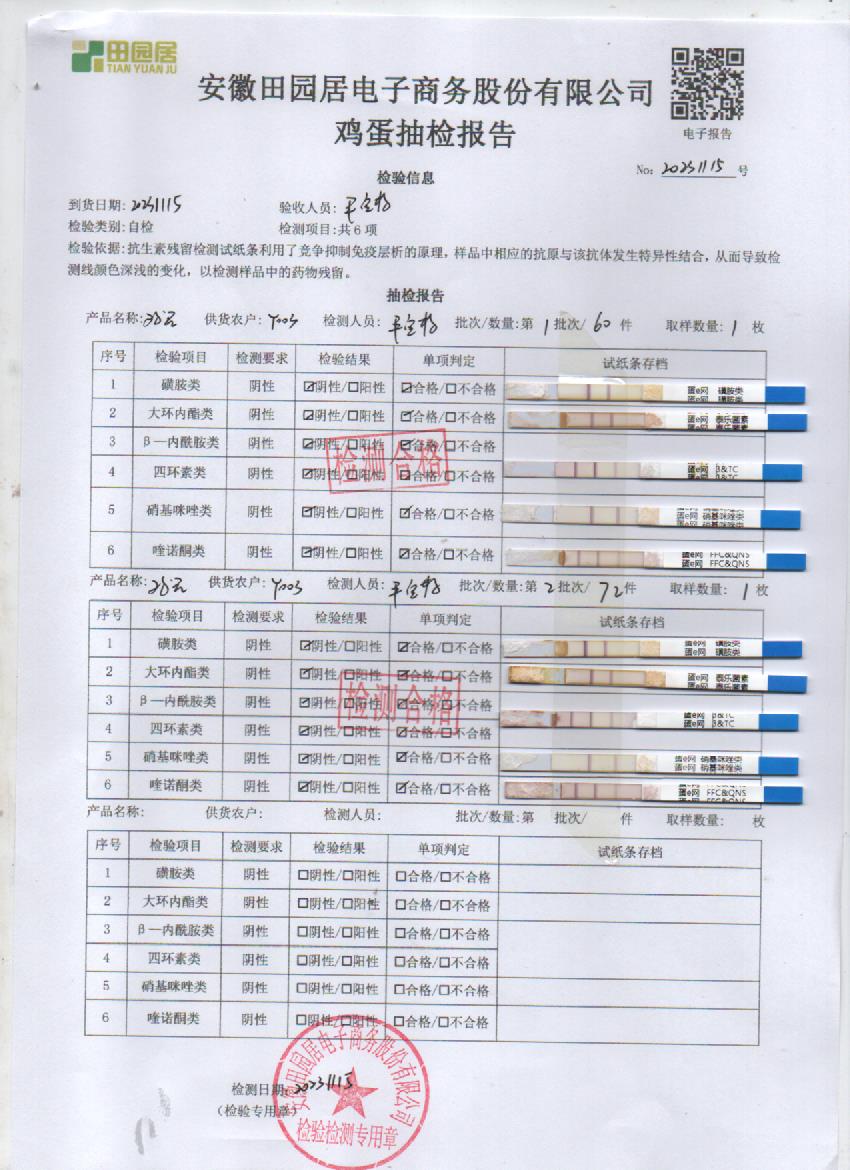 田园居
TIAN YUAN JU
安徽田园居电子商务股份有限公司
鸡蛋抽检报告
电子报告
No: 20231115 号
检验信息
到货日期: 20231115 验收人员:
检验类别: 自检 检测项目: 共 6 项
检验依据: 抗生素残留检测试纸条利用了竞争抑制免疫层析的原理，样品中相应的抗原与该抗体发生特异性结合，从而导致检
测线颜色深浅的变化，以检测样品中的药物残留。
抽检报告
产品名称: 供货农户: Y003 检测人员: 批次/数量:第 1 批次/ 60 件 取样数量: 1 枚
序号 检验项目 检测要求 检验结果 单项判定 试纸条存档
1 磺胺类 阴性 ☑阴性/☐阳性 ☑合格/☐不合格 蛋e网 磺胺类
2 大环内酯类 阴性 ☑阴性/☐阳性 ☑合格/☐不合格 蛋e网 泰乐菌素
3 β—内酰胺类 阴性 ☑阴性/☐阳性 ☑合格/☐不合格
4 四环素类 阴性 ☑阴性/☐阳性 ☑合格/☐不合格 蛋e网 β&TC
5 硝基咪唑类 阴性 ☑阴性/☐阳性 ☑合格/☐不合格 蛋e网 硝基咪唑类
6 喹诺酮类 阴性 ☑阴性/☐阳性 ☑合格/☐不合格 蛋e网 FFC&QNS
检测合格
产品名称: 供货农户: Y003 检测人员: 批次/数量:第 2 批次/ 72 件 取样数量: 1 枚
序号 检验项目 检测要求 检验结果 单项判定 试纸条存档
1 磺胺类 阴性 ☑阴性/☐阳性 ☑合格/☐不合格 蛋e网 磺胺类
2 大环内酯类 阴性 ☑阴性/☐阳性 ☑合格/☐不合格 蛋e网 泰乐菌素
3 β—内酰胺类 阴性 ☑阴性/☐阳性 ☑合格/☐不合格
4 四环素类 阴性 ☑阴性/☐阳性 ☑合格/☐不合格 蛋e网 β&TC
5 硝基咪唑类 阴性 ☑阴性/☐阳性 ☑合格/☐不合格 蛋e网 硝基咪唑类
6 喹诺酮类 阴性 ☑阴性/☐阳性 ☑合格/☐不合格 蛋e网 FFC&QNS
检测合格
产品名称: 供货农户: 检测人员: 批次/数量:第 批次/ 件 取样数量: 枚
序号 检验项目 检测要求 检验结果 单项判定 试纸条存档
1 磺胺类 阴性 ☐阴性/☐阳性 ☐合格/☐不合格
2 大环内酯类 阴性 ☐阴性/☐阳性 ☐合格/☐不合格
3 β—内酰胺类 阴性 ☐阴性/☐阳性 ☐合格/☐不合格
4 四环素类 阴性 ☐阴性/☐阳性 ☐合格/☐不合格
5 硝基咪唑类 阴性 ☐阴性/☐阳性 ☐合格/☐不合格
6 喹诺酮类 阴性 ☐阴性/☐阳性 ☐合格/☐不合格
检测日期: 20231115
(检验专用章)
安徽田园居电子商务股份有限公司
检验检测专用章